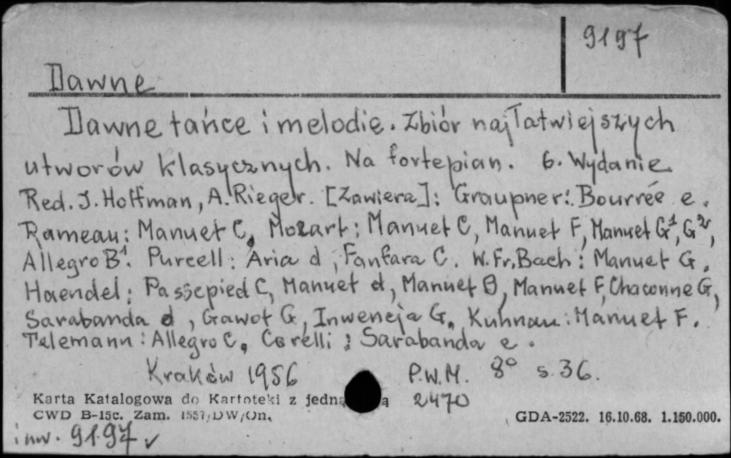 9197
Dawne
Dawne tańce i melodie. Zbiór najłatwiejszych
utworów klasycznych. Na fortepian. 6. Wydanie
Red. J. Hoffman, A. Rieger. [Zawiera]: Graupner: Bourrée e.
Rameau: Manuet C, Mozart: Manuet C, Manuet F, Manuet G¹, G²,
Allegro B¹. Purcell: Aria d, Fanfara C. W. Fr. Bach: Manuet G.
Haendel: Passepied C, Manuet d, Manuet B, Manuet F, Chaconne G,
Sarabanda d, Gawot G, Inwencja G. Kuhnau: Manuet F.
Telemann: Allegro C, Corelli: Sarabanda e.
Kraków 1956 P.W.M. 8° s. 36.
2470
Karta Katalogowa do Kartoteki z jedną
CWD B-15c. Zam. 1557/DW/On. GDA-2522. 16.10.68. 1.150.000.
inw. 9197 v